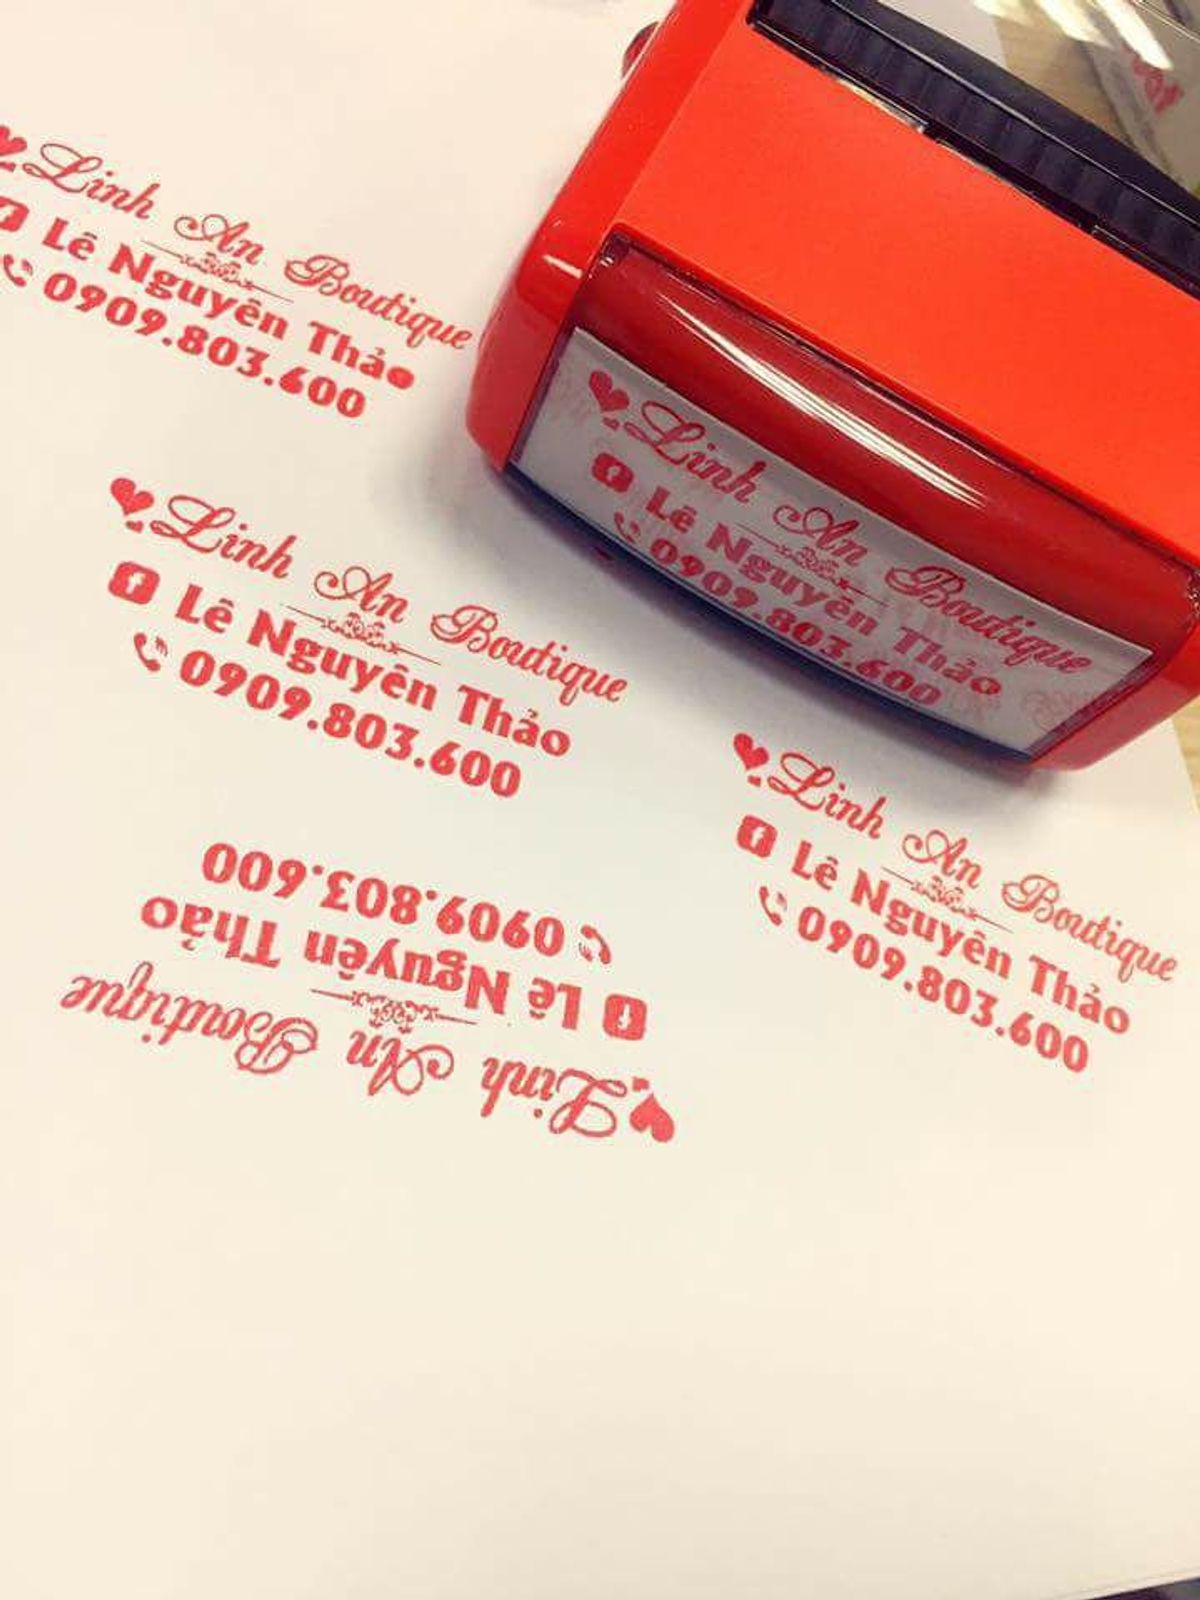 Linh An Boutique
Lê Nguyên Thảo
0909.803.600
Linh An Boutique
Lê Nguyên Thảo
0909.803.600
Linh An Boutique
Lê Nguyên Thảo
0909.803.600
Linh An Boutique
Lê Nguyên Thảo
0909.803.600
Linh An Boutique
Lê Nguyên Thảo
0909.803.600